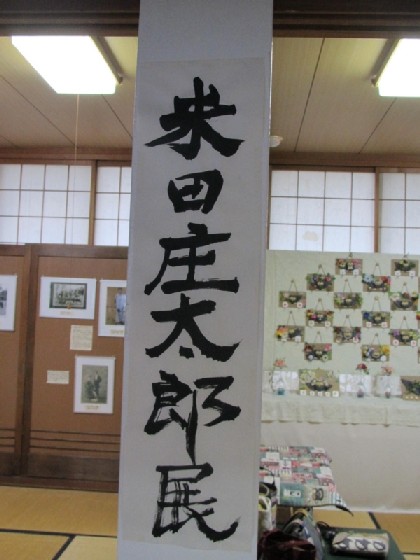 米田庄太郎展